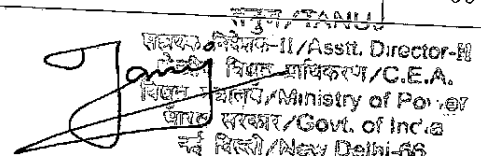 तनुज/TANUJ
सहायक निदेशक-II/Asstt. Director-II
केन्द्रीय विद्युत प्राधिकरण/C.E.A.
विद्युत मंत्रालय/Ministry of Power
भारत सरकार/Govt. of India
नई दिल्ली/New Delhi-66